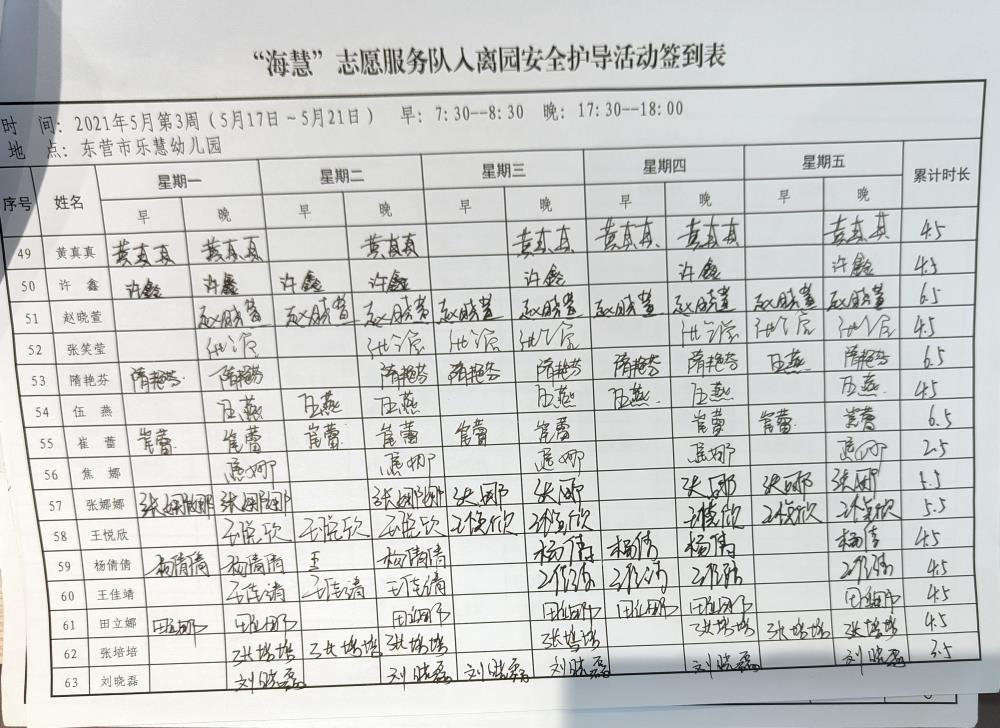 “海慧”志愿服务队入离园安全护导活动签到表
时 间：2021年5月第3周（5月17日～5月21日） 早：7:30--8:30 晚：17:30--18:00
地 点：东营市乐慧幼儿园
序号 姓名 星期一 星期二 星期三 星期四 星期五 累计时长
早 晚 早 晚 早 晚 早 晚 早 晚
49 黄真真 黄真真 黄真真 黄真真 黄真真 黄真真 黄真真 黄真真 4.5
50 许鑫 许鑫 许鑫 许鑫 许鑫 许鑫 许鑫 许鑫 4.5
51 赵晓萱 赵晓萱 赵晓萱 赵晓萱 赵晓萱 赵晓萱 赵晓萱 赵晓萱 赵晓萱 赵晓萱 6.5
52 张笑莹 4.5
53 隋艳芬 隋艳芬 隋艳芬 隋艳芬 隋艳芬 隋艳芬 隋艳芬 隋艳芬 隋艳芬 6.5
54 伍燕 伍燕 伍燕 伍燕 伍燕 伍燕 伍燕 伍燕 伍燕 4.5
55 崔蕾 崔蕾 崔蕾 崔蕾 崔蕾 崔蕾 崔蕾 崔蕾 崔蕾 崔蕾 6.5
56 焦娜 焦娜 焦娜 焦娜 焦娜 焦娜 2.5
57 张娜娜 张娜娜 张娜娜 张娜娜 张娜 张娜 张娜 张娜 张娜 5.5
58 王悦欣 王悦欣 王悦欣 王悦欣 王悦欣 王悦欣 王悦欣 王悦欣 王悦欣 5.5
59 杨倩倩 杨倩倩 杨倩倩 王 杨倩倩 杨倩 杨倩 杨倩 杨倩 4.5
60 王佳靖 王佳靖 王佳靖 王佳靖 王佳靖 王佳靖 王佳靖 王佳靖 4.5
61 田立娜 田立娜 田立娜 田立娜 田立娜 田立娜 田立娜 田立娜 4.5
62 张培培 张培培 张培培 张培培 张培培 张培培 张培培 张培培 4.5
63 刘晓磊 刘晓磊 刘晓磊 刘晓磊 刘晓磊 刘晓磊 刘晓磊 3.5